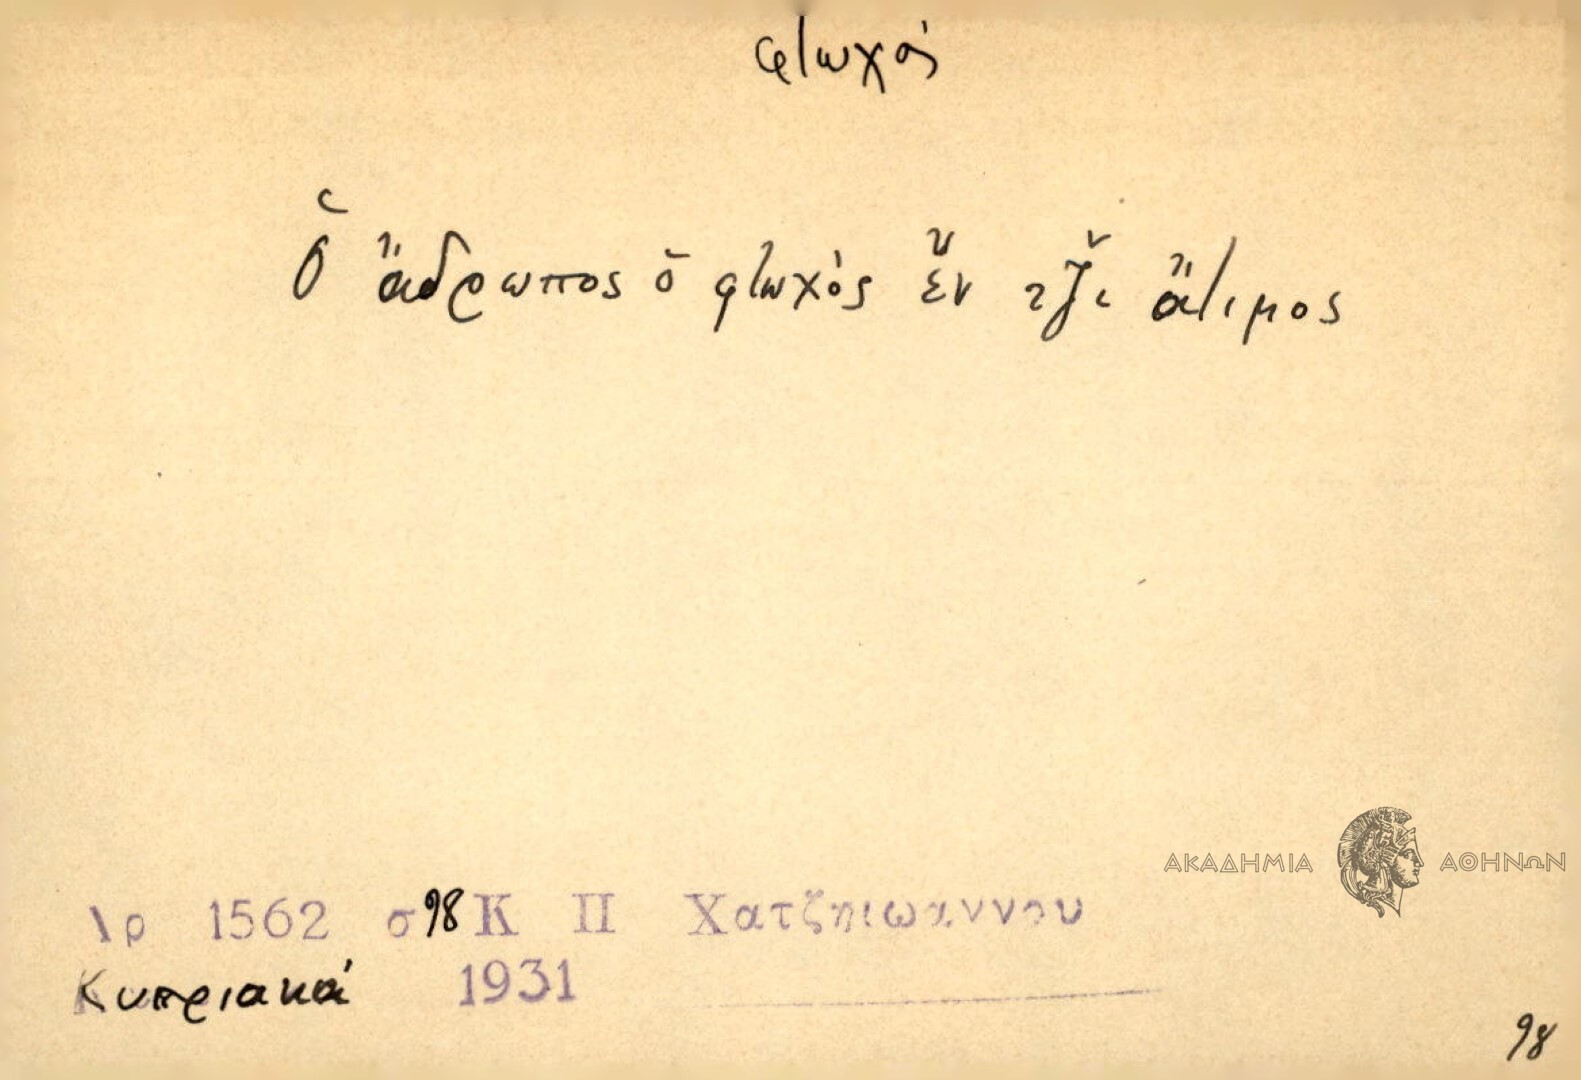 φτωχός
Ὁ ἄδρωπος ὁ φτωχὸς ἔν τζ̌ι ἄτιμος
ΑΚΑΔΗΜΙΑ ΑΘΗΝΩΝ
Αρ 1562 σ 98 Κ Π Χατζηιωαννου
Κυπριακά 1931
98